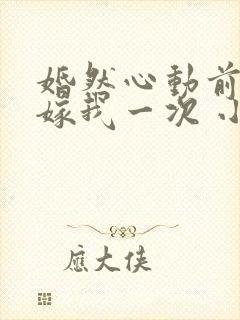 婚然心動前
嫁我一次 小
應大俠